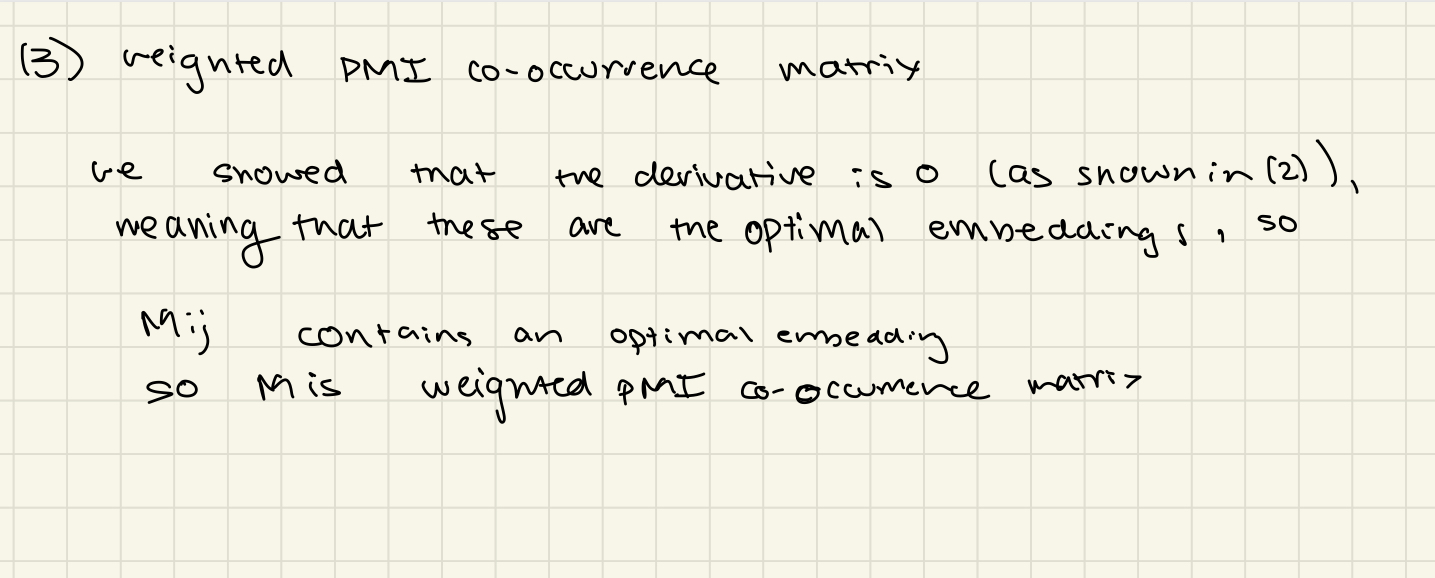 (3) weighted PMI co-occurrence matrix
we showed that the derivative is 0 (as shown in (2)),
meaning that these are the optimal embeddings, so
Mij contains an optimal embedding
so M is weighted PMI co-occurrence matrix